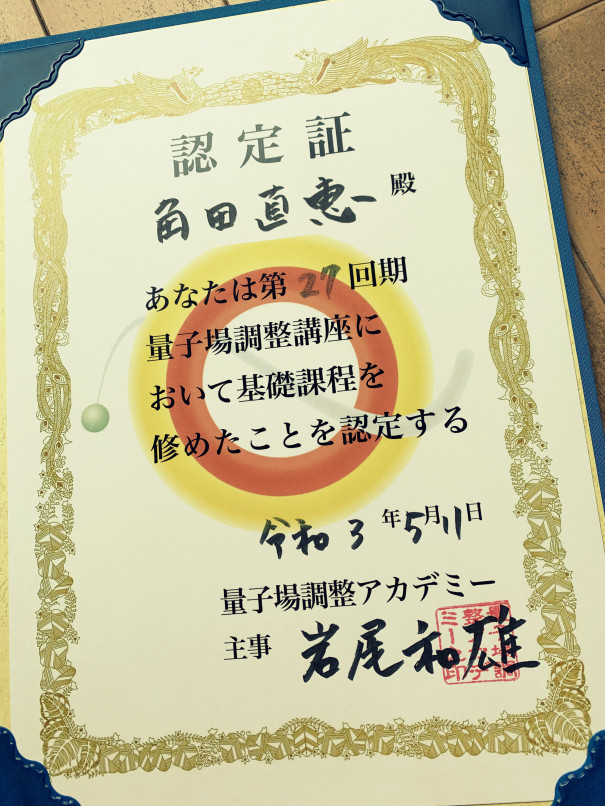 認定証
角田直恵 殿
あなたは第27回期
量子場調整講座に
おいて基礎課程を
修めたことを認定する
令和3年5月11日
量子場調整アカデミー
主事 岩尾和雄